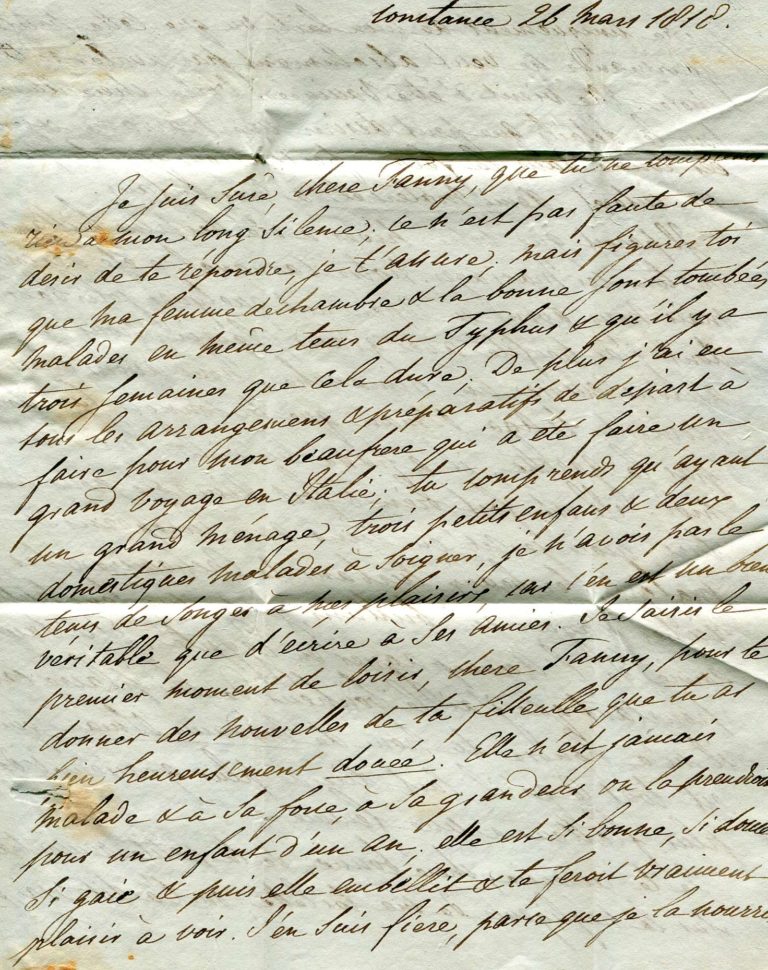 Constance 26 mars 1818.
Je suis sure, chere Fanny, que tu ne comprens
rien à mon long silence; ce n'est pas faute de
desir de te répondre, je t'assure; mais figures toi
que ma femme de chambre & la bonne sont tombées
malades en même tems du Typhus & qu'il y a
trois semaines que cela dure. De plus j'ai eu
tous les arrangemens & préparatifs de départ à
faire pour mon beaufrere qui a été faire un
grand voyage en Italie; tu comprends qu'ayant
un grand ménage, trois petits enfans & deux
domestiques malades à soigner, je n'avois pas le
tems de songer à mes plaisirs, car c'en est un bien
véritable que d'écrire à ses amies. Je saisis le
premier moment de loisir, chere Fanny, pour te
donner des nouvelles de ta filleulle que tu as
bien heureusement douée. Elle n'est jamais
malade & à sa force, à sa grandeur on la prendroit
pour un enfant d'un an; elle est si bonne, si douce
si gaie & puis elle embellit & te feroit vraiment
plaisir à voir. J'en suis fiere, parce que je la nourris